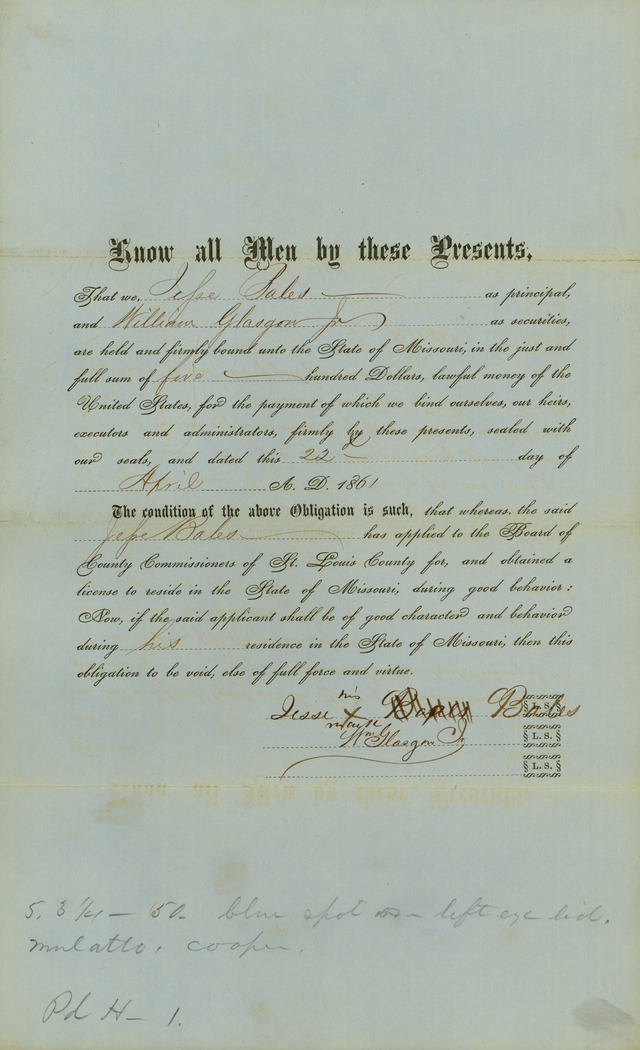 Know all Men by these Presents,
That we, Jesse Bales as principal,
and William Glasgow Jr as securities,
are held and firmly bound unto the State of Missouri, in the just and
full sum of five hundred Dollars, lawful money of the
United States, for the payment of which we bind ourselves, our heirs,
executors and administrators, firmly by these presents, sealed with
our seals, and dated this 22d day of
April A. D. 1861
The condition of the above Obligation is such, that whereas. the said
Jesse Bales has applied to the Board of
County Commissioners of St. Louis County for, and obtained a
license to reside in the State of Missouri, during good behavior:
Now, if the said applicant shall be of good character and behavior
during his residence in the State of Missouri, then this
obligation to be void, else of full force and virtue.
his
Jesse X Bales L. S.
mark
Wm Glasgow Jr L. S.
L. S.
5. 3 1/4 - 50. blue spot on left eye lid.
mulatto. cooper.
Pd H - 1.